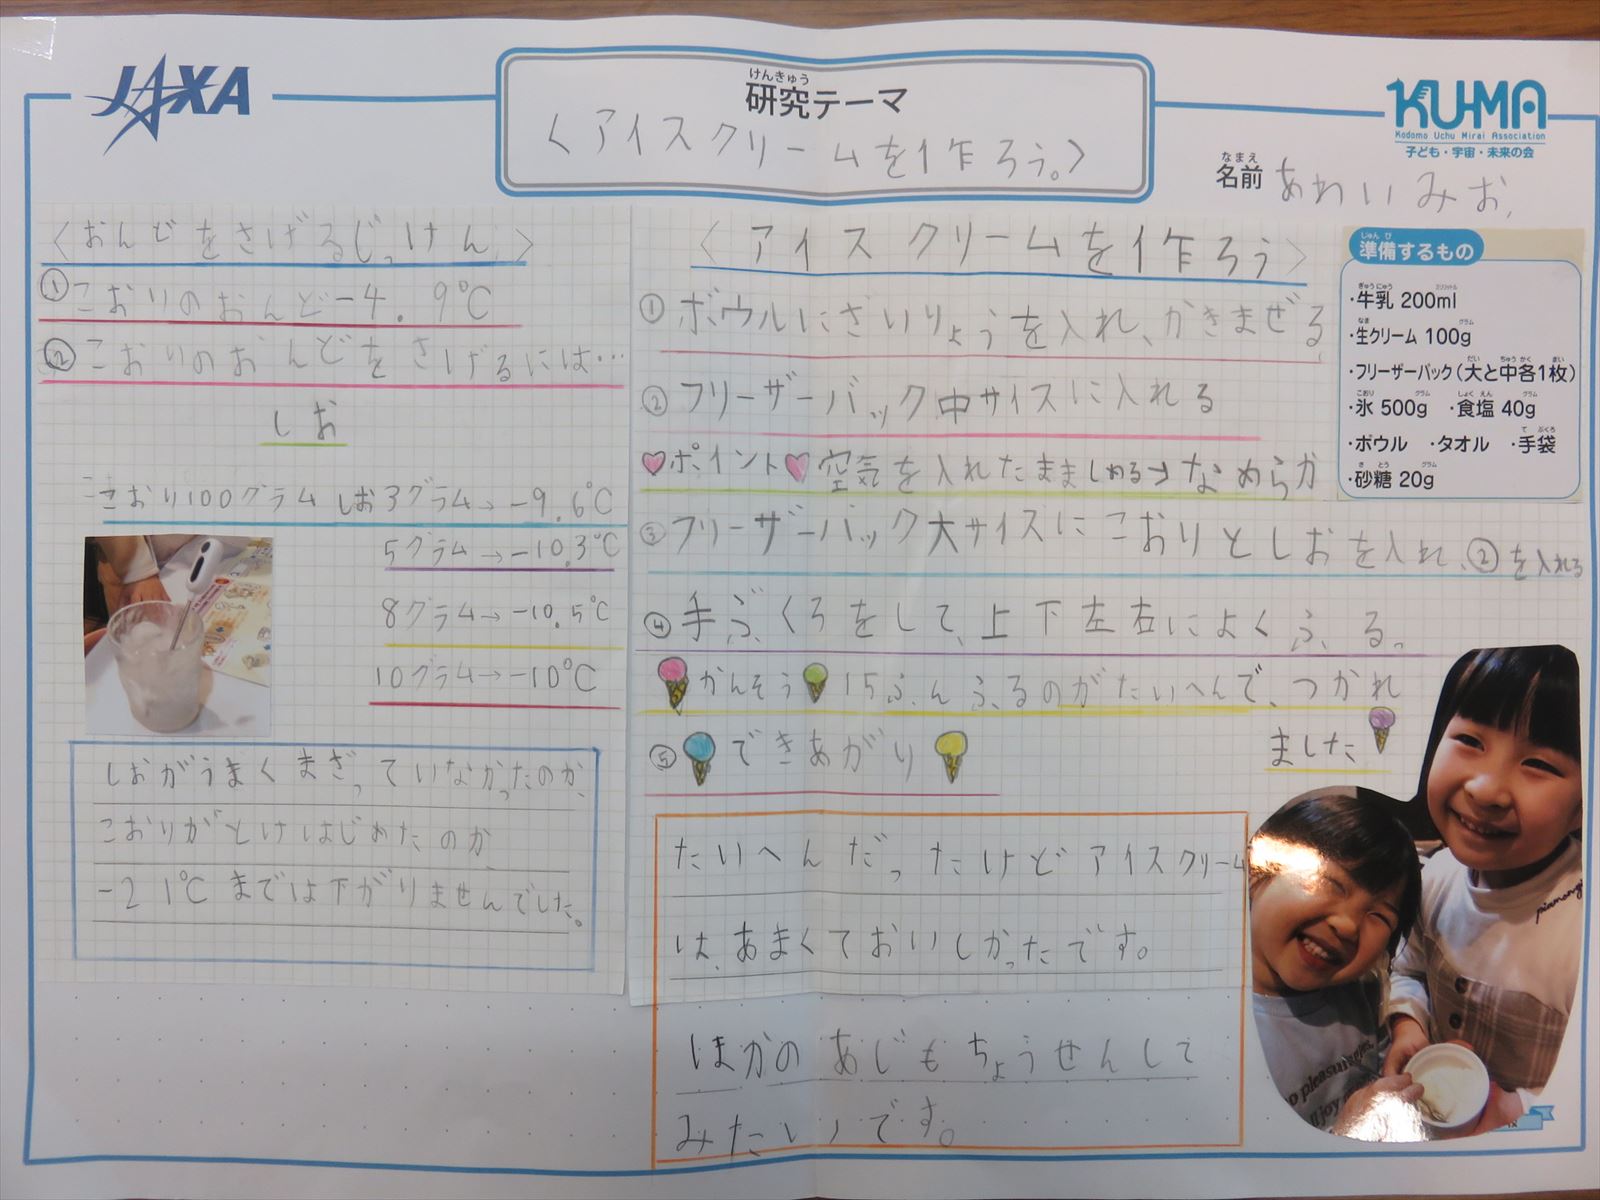 JAXA
けんきゅう
研究テーマ
〈アイスクリームを作ろう。〉
KU-MA
Kodomo Uchu Mirai Association
子ども・宇宙・未来の会
なまえ
名前 あわいみお
〈おんどをさげるじっけん〉
①こおりのおんど-4.9℃
②こおりのおんどをさげるには…
しお
こおり100グラム しお3グラム→-9.6℃
5グラム→-10.3℃
8グラム→-10.5℃
10グラム→-10℃
しおがうまくまざっていなかったのか、
こおりがとけはじめたのか、
-21℃までは下がりませんでした。
〈アイスクリームを作ろう〉
①ボウルにざいりょうを入れ、かきまぜる
②フリーザーバック中サイズに入れる
♡ポイント♡空気を入れたまましめる→なめらか
③フリーザーバック大サイズにこおりとしおを入れ、②を入れる
④手ぶくろをして、上下左右によくふる。
かんそう 15ふんふるのがたいへんで、つかれ
ました
⑤できあがり
たいへんだったけどアイスクリーム
は、あまくておいしかったです。
ほかのあじもちょうせんして
みたいです。
じゅんび
準備するもの
ぎゅうにゅう ミリリットル
・牛乳 200ml
なま グラム
・生クリーム 100g
だい ちゅう かく まい
・フリーザーパック(大と中各1枚)
こおり グラム しょく えん グラム
・氷 500g ・食塩 40g
て ぶくろ
・ボウル ・タオル ・手袋
さ とう グラム
・砂糖 20g